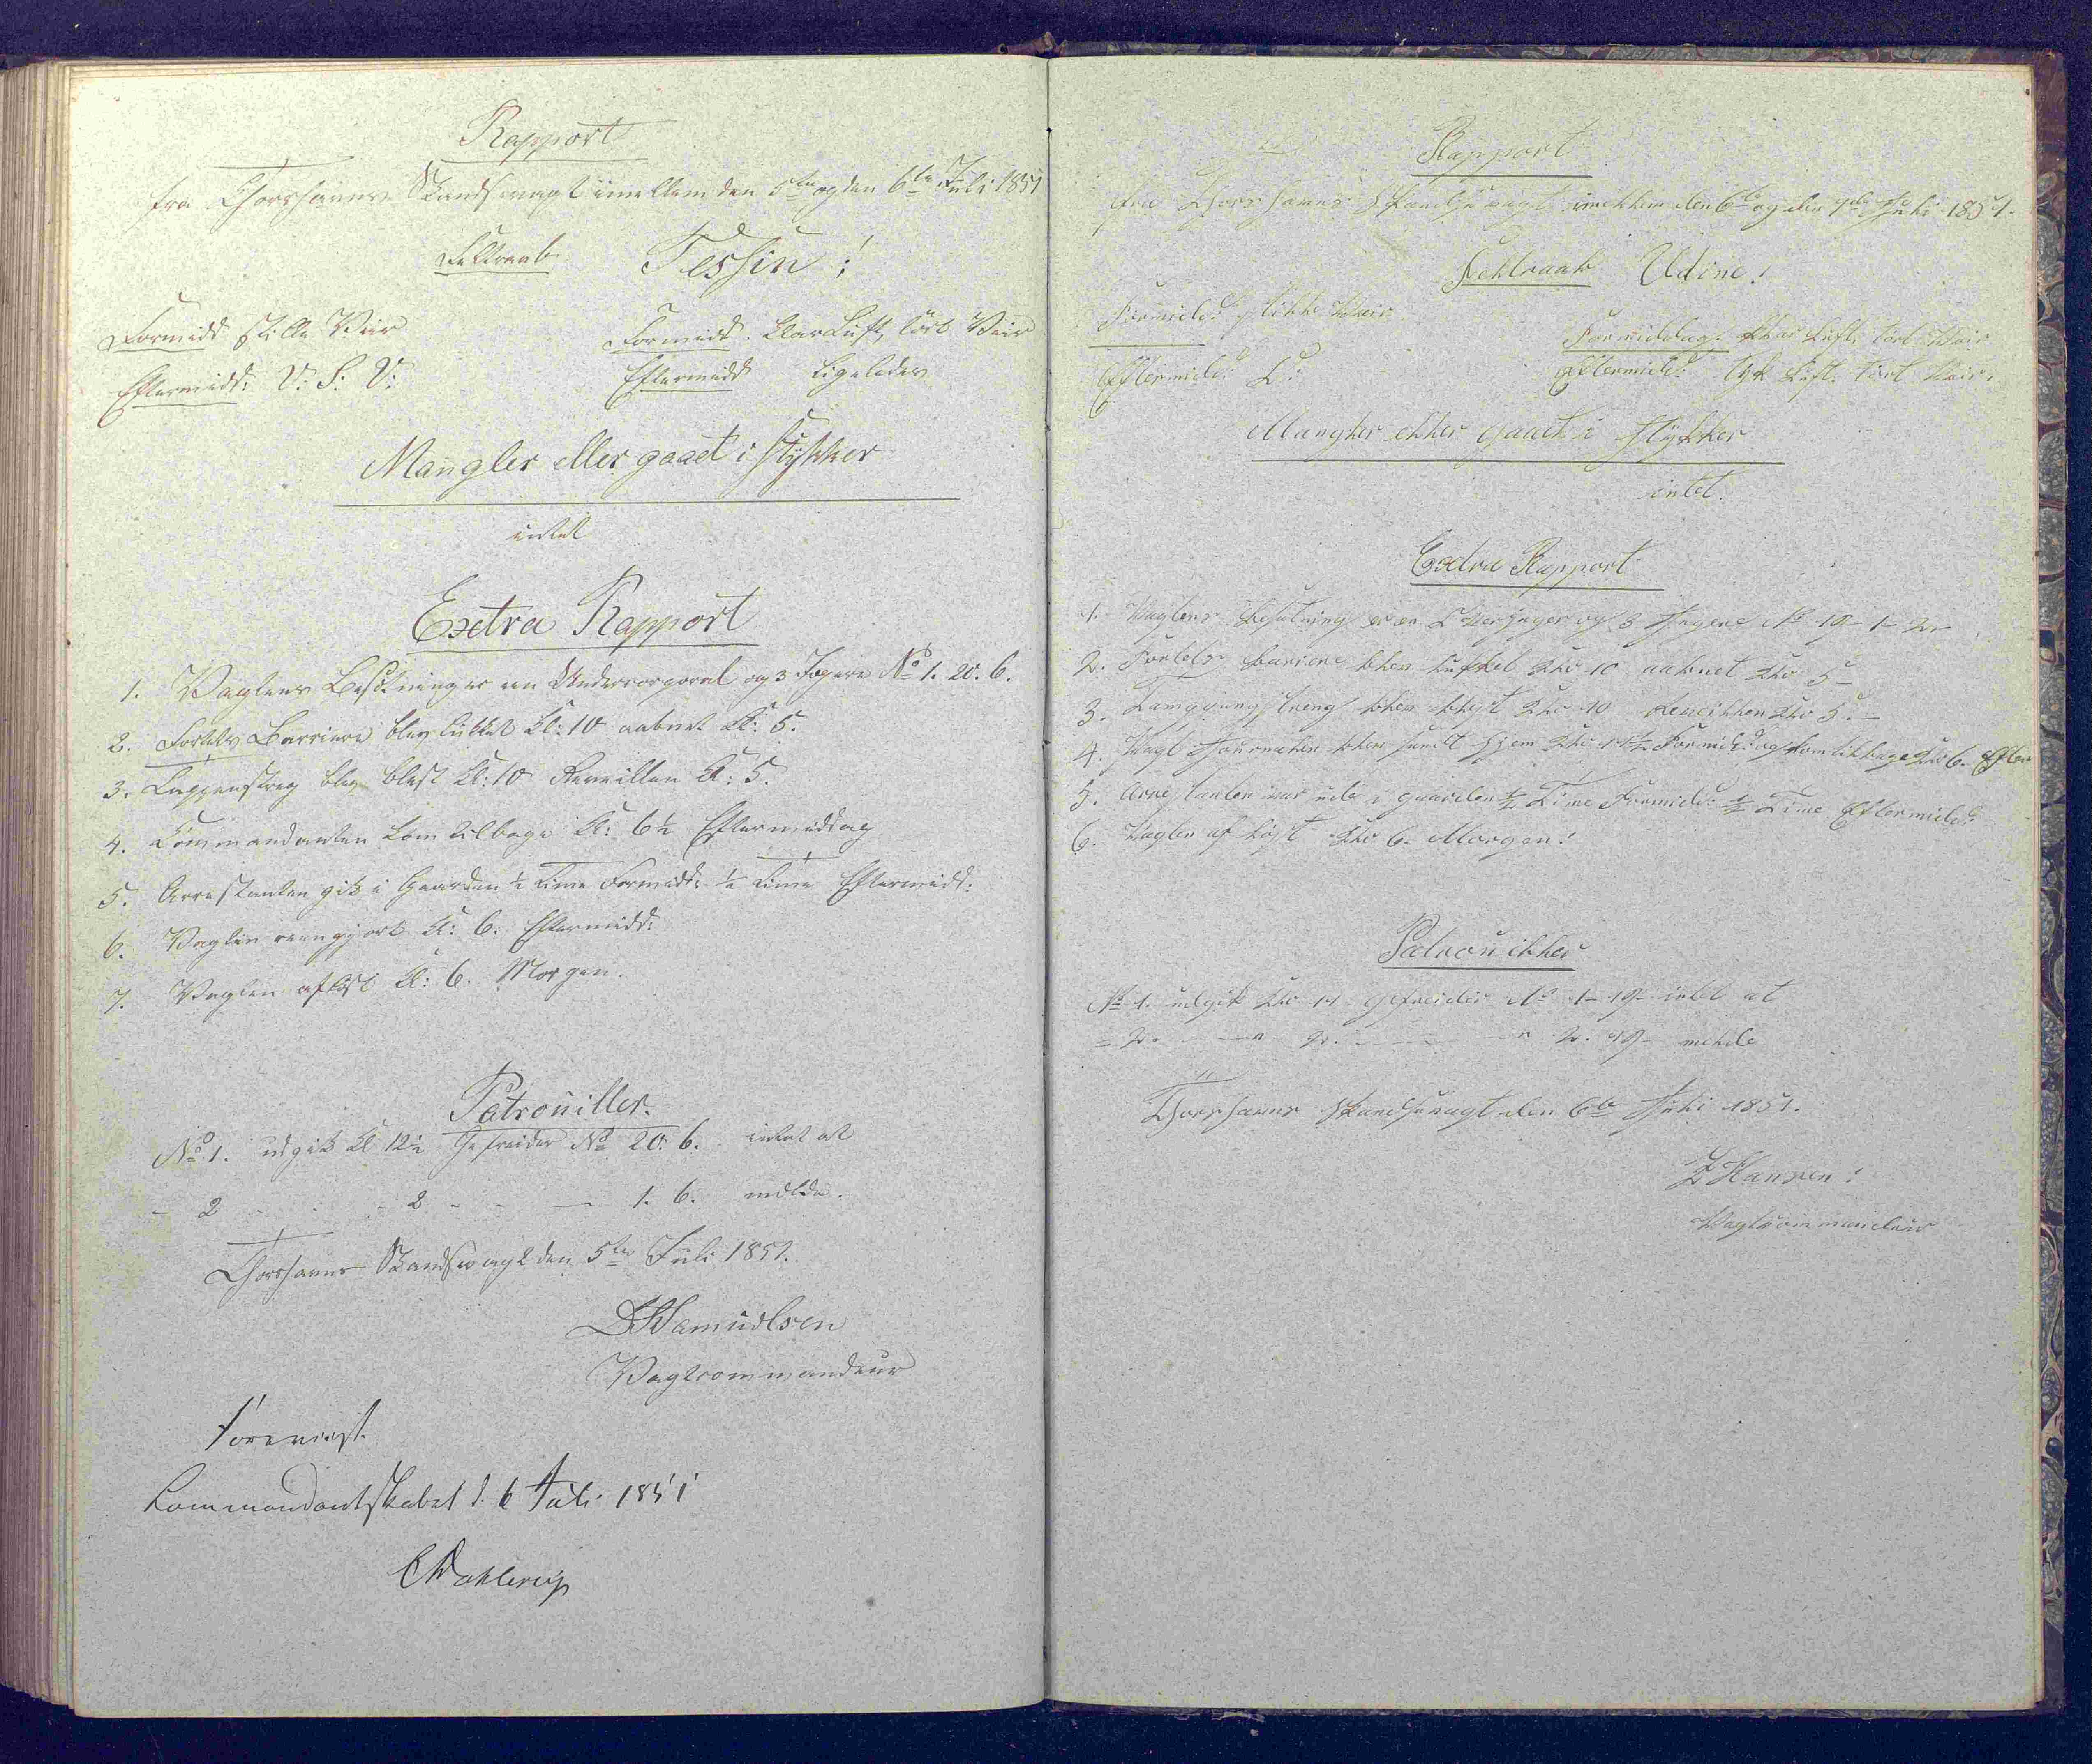 Rapport
fra Thorshavns Skandsevagt imellem den 5te og den 6te Juli 1851
Feltraab Tessin!
Formidd stille Veir Formidd. klar Luft, tört Veir
Eftermidd: V. S. V: Eftermidd ligeledes
Mangler eller gaaet i stykker
intet
Extra Rapport
1. Vagtens Besætning er en Undercorporal og 3 Jægere No 1. 20. 6.
2. Fortets Barriere blev lukket Kl: 10 aabnet Kl: 5.
3. Tappenstreg blev blæst Kl: 10 Reveillen Kl: 5.
4. Commandanten kom tilbage Kl: 6½ Eftermiddag
5. Arrestanten gik i Gaarden ½ Time Formidd: ½ Time Eftermidd:
6. Vagten reengjort Kl: 6. Eftermidd:
7. Vagten aflöst Kl: 6. Morgen.
Patrouiller.
No 1. udgik Kl 12½ Gefreider No 20. 6. intet at
- 2 - - - 2 - - — 1. 6. melde.
Thorshavns Skandsevagt den 5te Juli 1851.
Samuelsen
Vagtcommandeur
Foreviist.
Commandantskabet d. 6 Juli 1851
CDahlerup
Rapport
fra Thorshavns Skandsevagt imellem den 6te og den 7de Juli 1851.
Feltraab Udine!
Formidd: stille Veir Formiddag: klar Luft, tört Veir
Eftermidd: L: Eftermidd: tyk Luft. tört Veir.
Mangler eller gaaet i stykker
intet.
Extra Rapport
1. Vagtens besætning er en Overjæger og 3 Jægere No 19 - 1 - 2
2. Fortets barriere blev lukket Klo 10 aabnet Klo 5 -
3. Tampgungstreng blev blæst Klo 10 Reveillen Klo 5. -
4. Vagt Journalen blev sendt hjem Klo 11½ Formidd: og kom tilbage Klo 6. Efter
5. Arrestanten var ude i gaarden ½ Time Formidd: ½ Time Eftermidd:
6. Vagten aflöst Klo 6. Morgen!
Patrouiller
No 1. udgik Klo 11 gefreider No 1 - 19 - intet at
= 2. — " 2. — — " 2. 19 - melde
Thorshavns Skandsevagt den 6te Juli 1851.
Hansen!
Vagtcommandeur